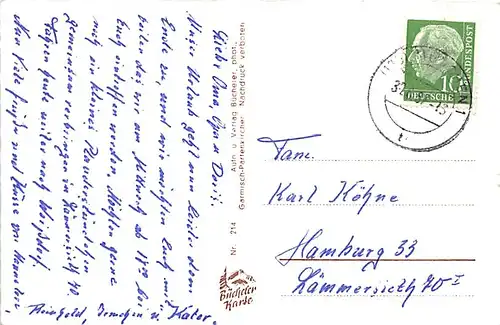 Liebe Oma, Opa u. Doris!
Unser Urlaub geht nun leider dem
Ende zu, und wir möchten Euch mit-
teilen das wir am Mittwoch ab 17°° bei
Euch eintreffen werden. Möchten gerne
noch ein kleines Plauderstündchen
gemeinsam verbringen in Lämmersieth 70
Fahren heute weiter nach
Nun viele Grüße und Küsse von
Reingold, Irmchen u. Kater.
Auth. u. Verlag Bücheler, phot.,
Garmisch-Partenkirchen Nachdruck verboten
Nr. 214
Bücheler
Karte
10
DEUTSCHE
BUNDESPOST
Fam.
Karl Köhne
Hamburg 33
Lämmersieth 70 I